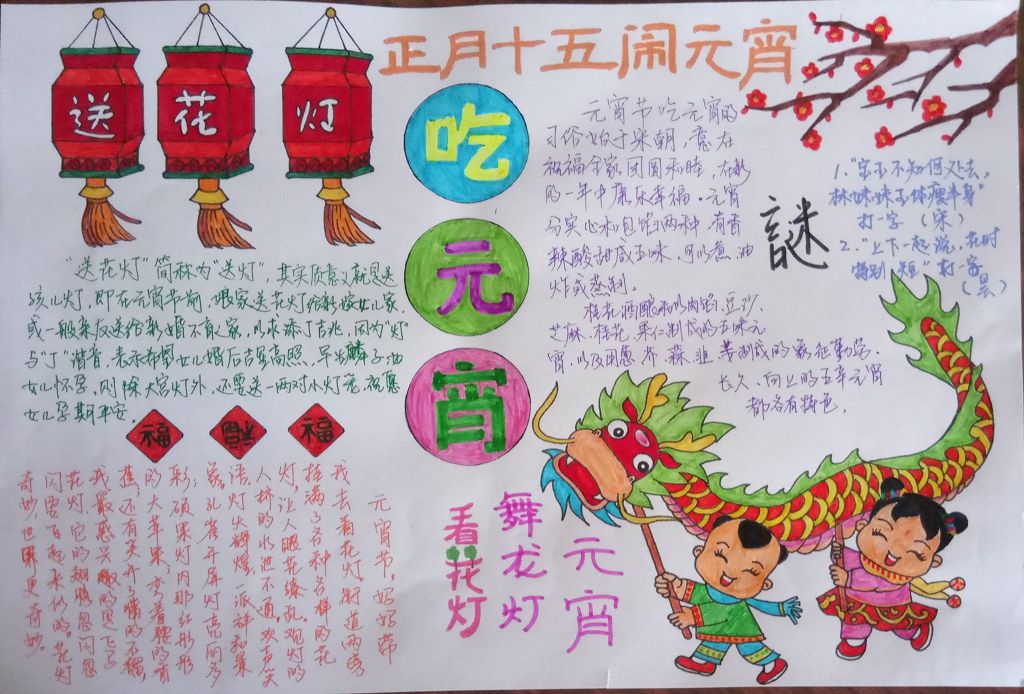 正月十五闹元宵
送 花 灯
吃
元
宵
元宵节吃元宵的
习俗始于宋朝，意在
祝福全家团圆和睦，在新
的一年中康乐幸福。元宵
分实心和包馅两种，有香
辣酸甜咸五味，可以煮、油
炸或蒸制。
桂花酒酿和以肉馅、豆沙、
芝麻、桂花、果仁制成的五味元
宵，以及用葱、芥、蒜、韭、姜制成的象征勤劳、
长久、向上的五辛元宵
都各有特色。
謎
1."宝玉不知何处去，
林妹妹玉体瘦半身"
打一字（宋）
2."上下一起说，花时
特别短"打一字
（昙）
"送花灯"简称为"送灯"，其实质意义就是送
孩儿灯，即在元宵节前，娘家送花灯给新嫁女儿家，
或一般亲友送给新婚不育之家，以求添丁吉兆，因为"灯"
与"丁"谐音，表示希望女儿婚后吉星高照，早生麟子；如
女儿怀孕，则除大宫灯外，还要送一两对小灯笼，祝愿
女儿孕期平安。
福 福 福
元宵节，妈妈带
我去看花灯，街道两旁
挂满了各种各样的花
灯，让人眼花缭乱。观灯的
人挤的水泄不通，欢声笑
语，灯火辉煌，一派祥和景
象。孔雀开屏灯亮丽多
彩；硕果灯内那红彤彤
的大苹果，弯着腰的香
蕉，还有笑开了嘴的石榴，
我最感兴趣的是飞飞
花灯，它的翅膀忽闪忽
闪，要飞起来似的。花灯
奇妙，世界更奇妙。
看花灯
舞龙灯
元宵